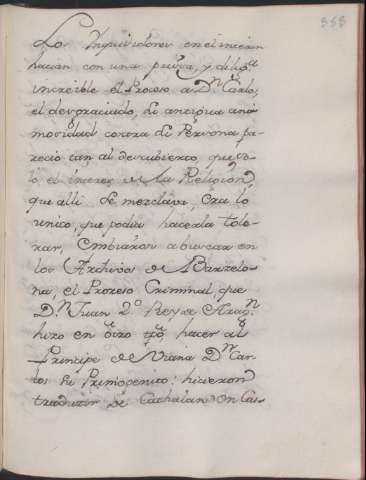 358
Los Inquisidores en el interin
hacian con una prisa, y dilig.ª
increible el Proceso a D.n Carlos
el desgraciado, la antigua ani
mosidad contra la Persona pa
recio tan al descubierto, que so
lo el interes de la Religion,
que alli se mezclava, era lo
unico, que podia hacerla tole-
rar, embiaron a buscar en
los Archivos de Barzelo-
na, el Prozeso Criminal, que
D.n Juan 2.º Rey de Arag.n
hizo en otro tpo, hacer al
Principe de Viana D.n Car-
los su Primogenito: hicieron
traducir de Cathalan en Cas-